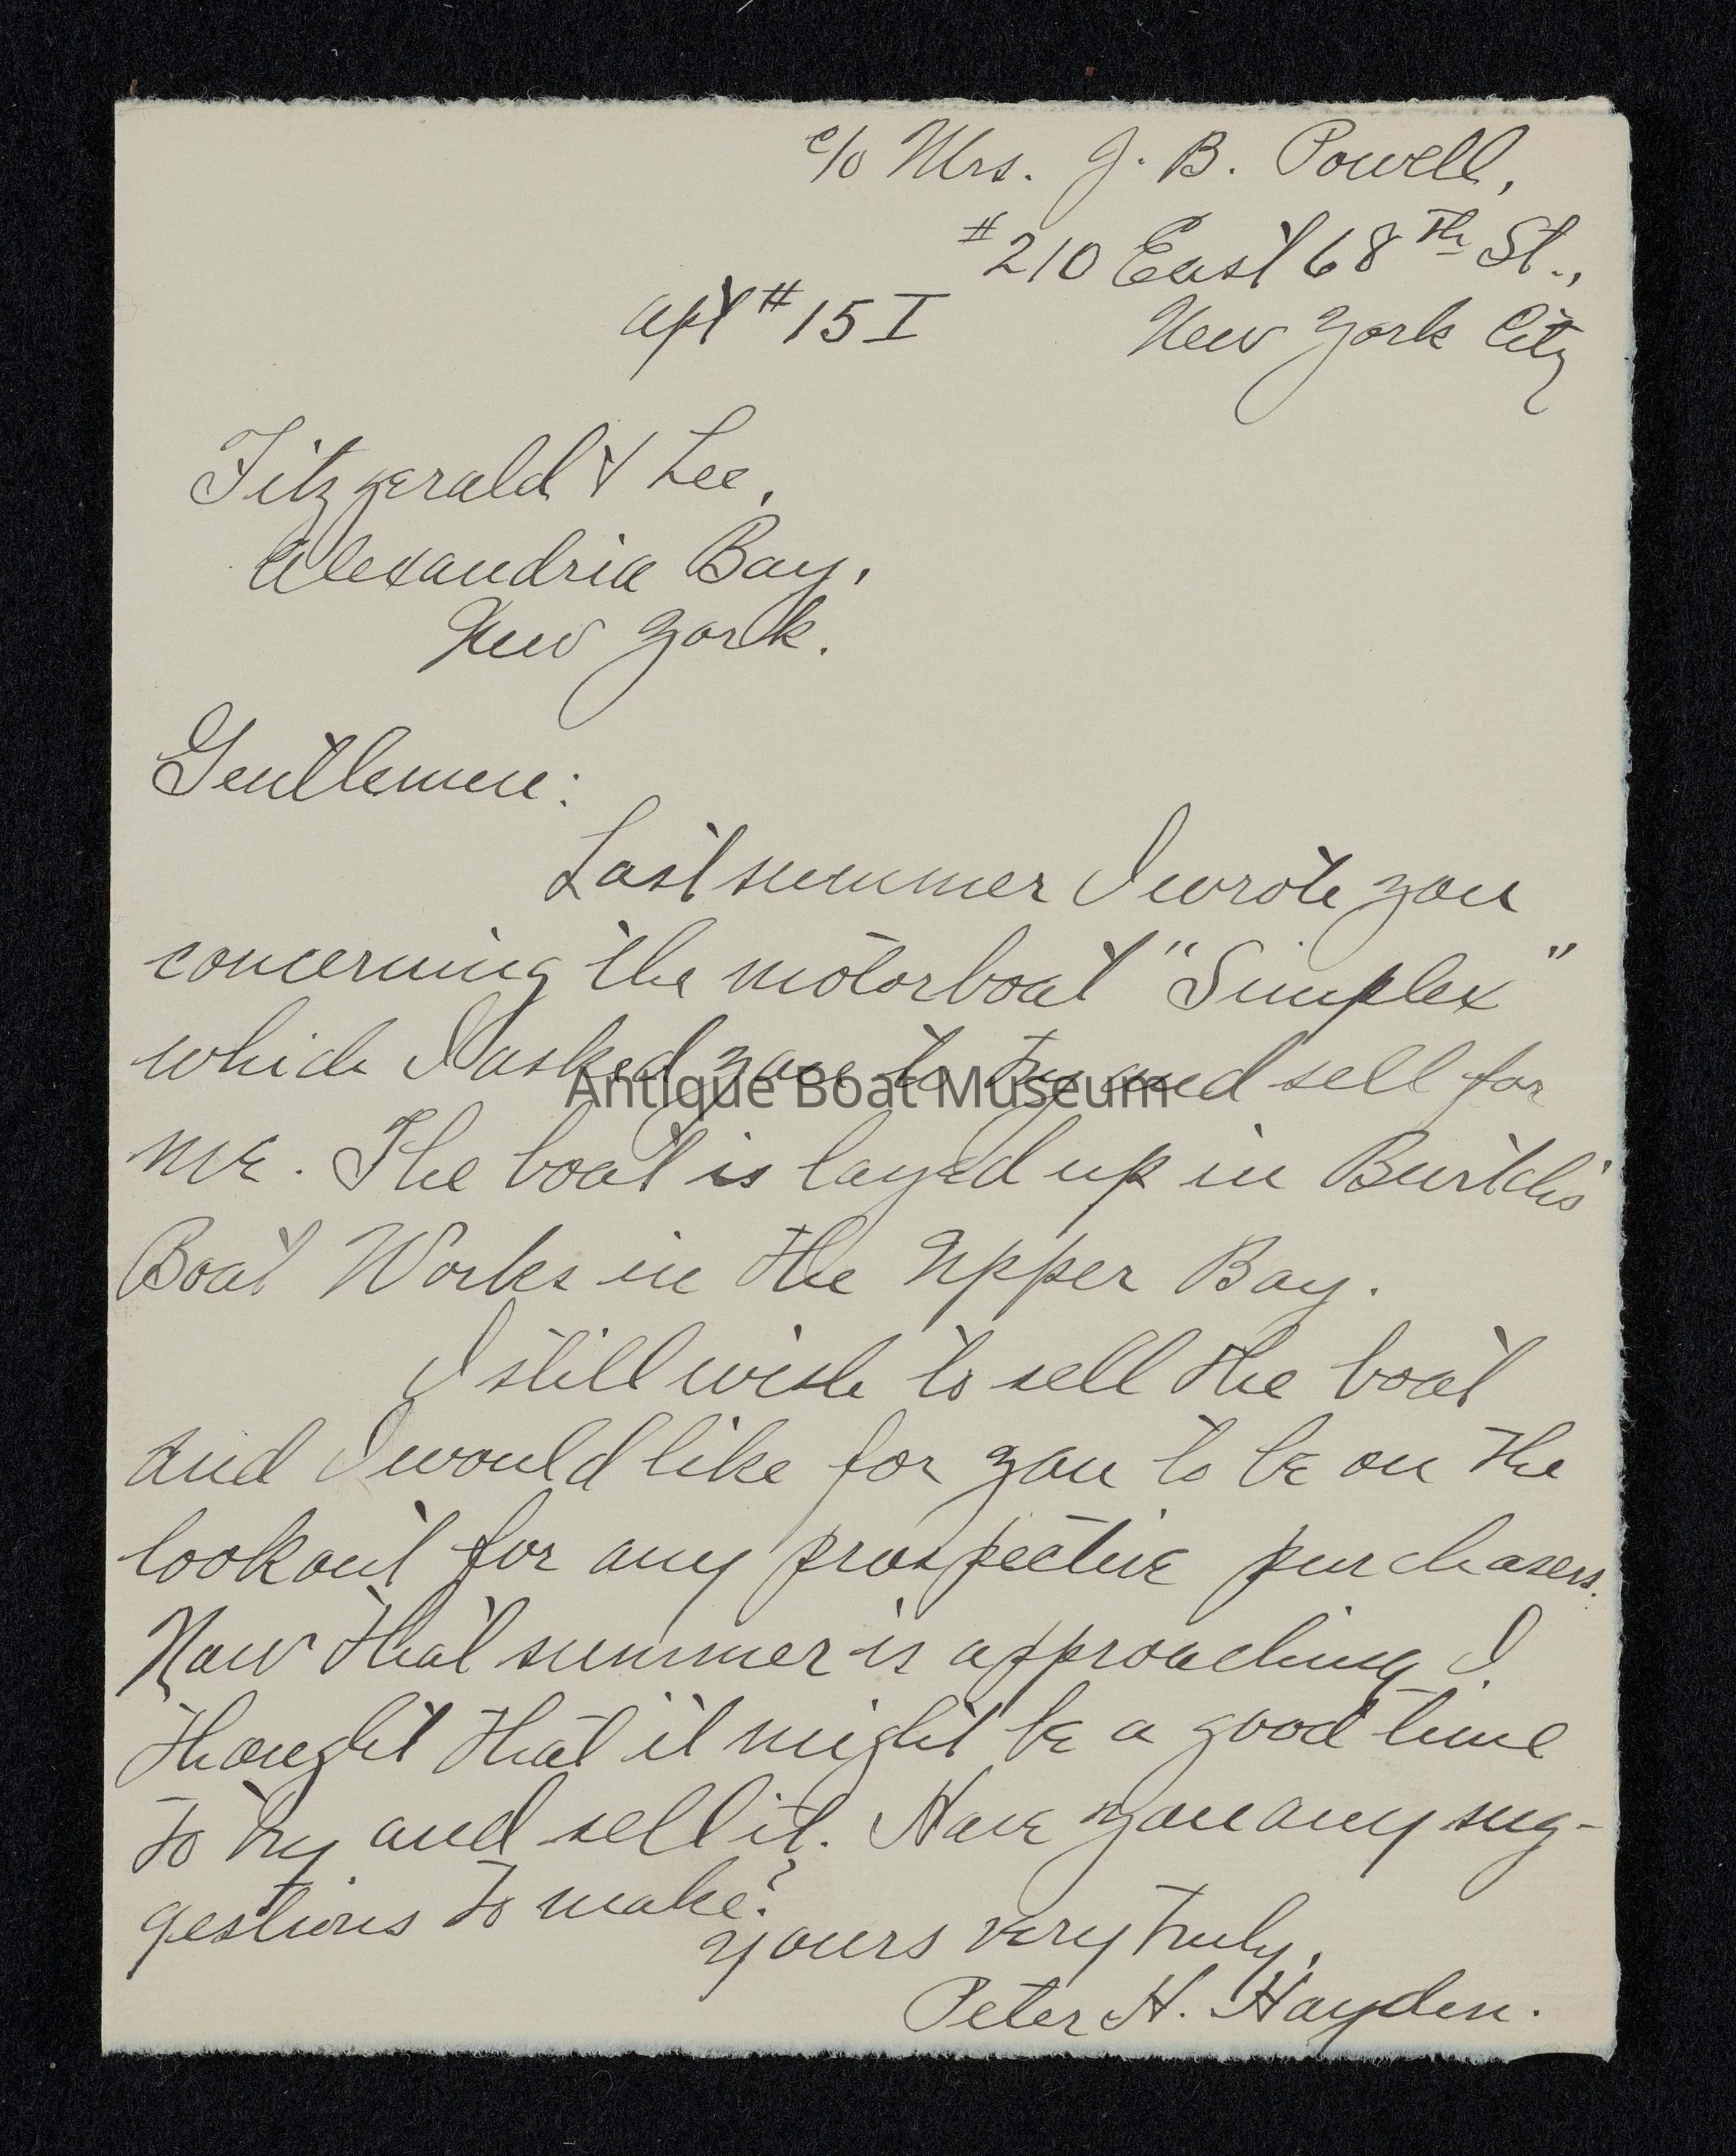 c/o Mrs. J. B. Powell,
#210 East 68th St.,
apt #15 I New York City
Fitzgerald & Lee,
Alexandria Bay,
New York.
Gentlemen:
Last summer I wrote you
concerning the motorboat "Simplex"
which I asked you to try and sell for
Antique Boat Museum
me. The boat is layed up in Burtch's
Boat Works in the Upper Bay.
I still wish to sell the boat
and I would like for you to be on the
lookout for any prospective purchasers.
Now that summer is approaching I
thought that it might be a good time
to try and sell it. Have you any sug-
gestions to make?
Yours very truly,
Peter H. Hayden.